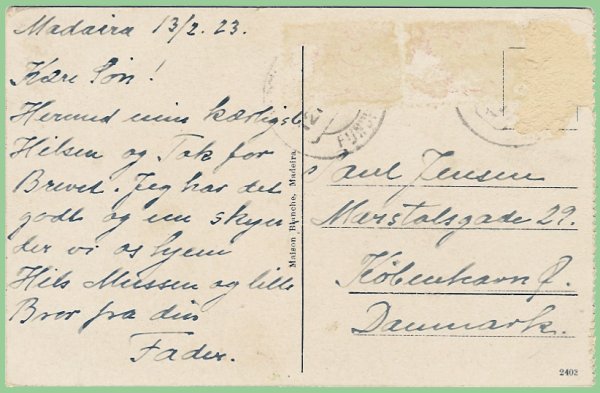 Madaira 13/2. 23.
Kære Søn!
Hermed min kærligste
Hilsen og Tak for
Brevet. Jeg har det
godt og nu skyn
der vi os hjem
Hils Mussen og lille
Bror fra din
Fader.
Maison Blanche, Madeira
Paul Jensen
Marstalsgade 29.
København Ø.
Danmark.
2403